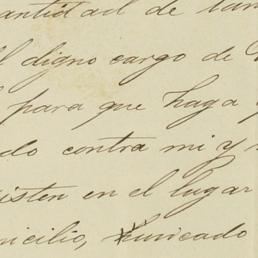 antidad de
el digno cargo de
para que haga
do contra mi y
isten en el lugar
micilio, ubicado